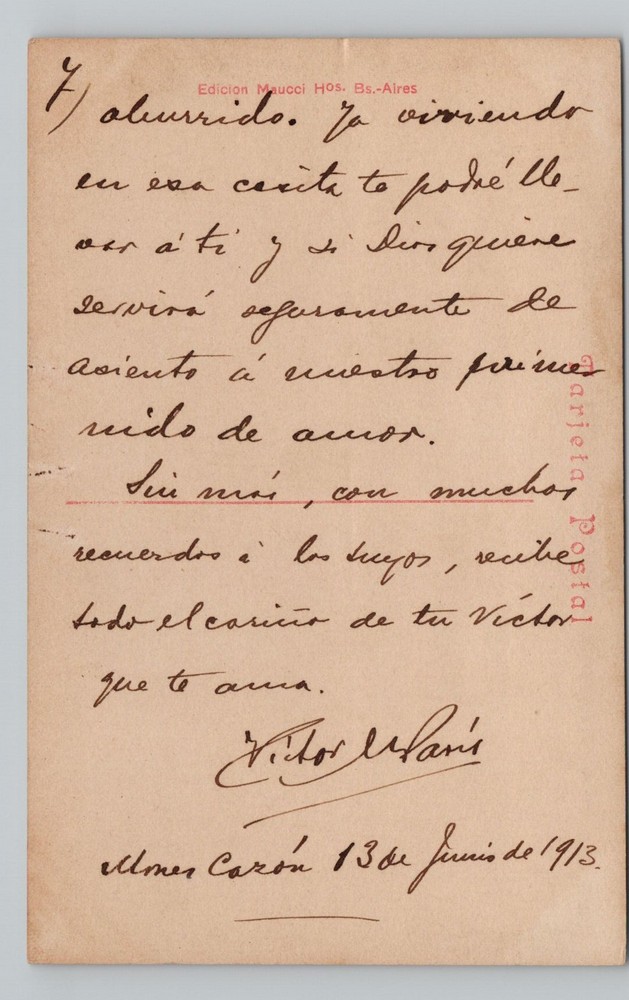 7)
Edicion Maucci Hos. Bs.-Aires
aburrido. Ya viviendo
en esa casita te podré lle-
var á ti y si Dios quiere
servirá seguramente de
asiento á nuestro primer
nido de amor.
Sin más, con muchos
recuerdos á los tuyos, recibe
todo el cariño de tu Víctor
que te ama.
Víctor M Paris
Mones Cazón 13 de Junio de 1913.
Tarjeta Postal